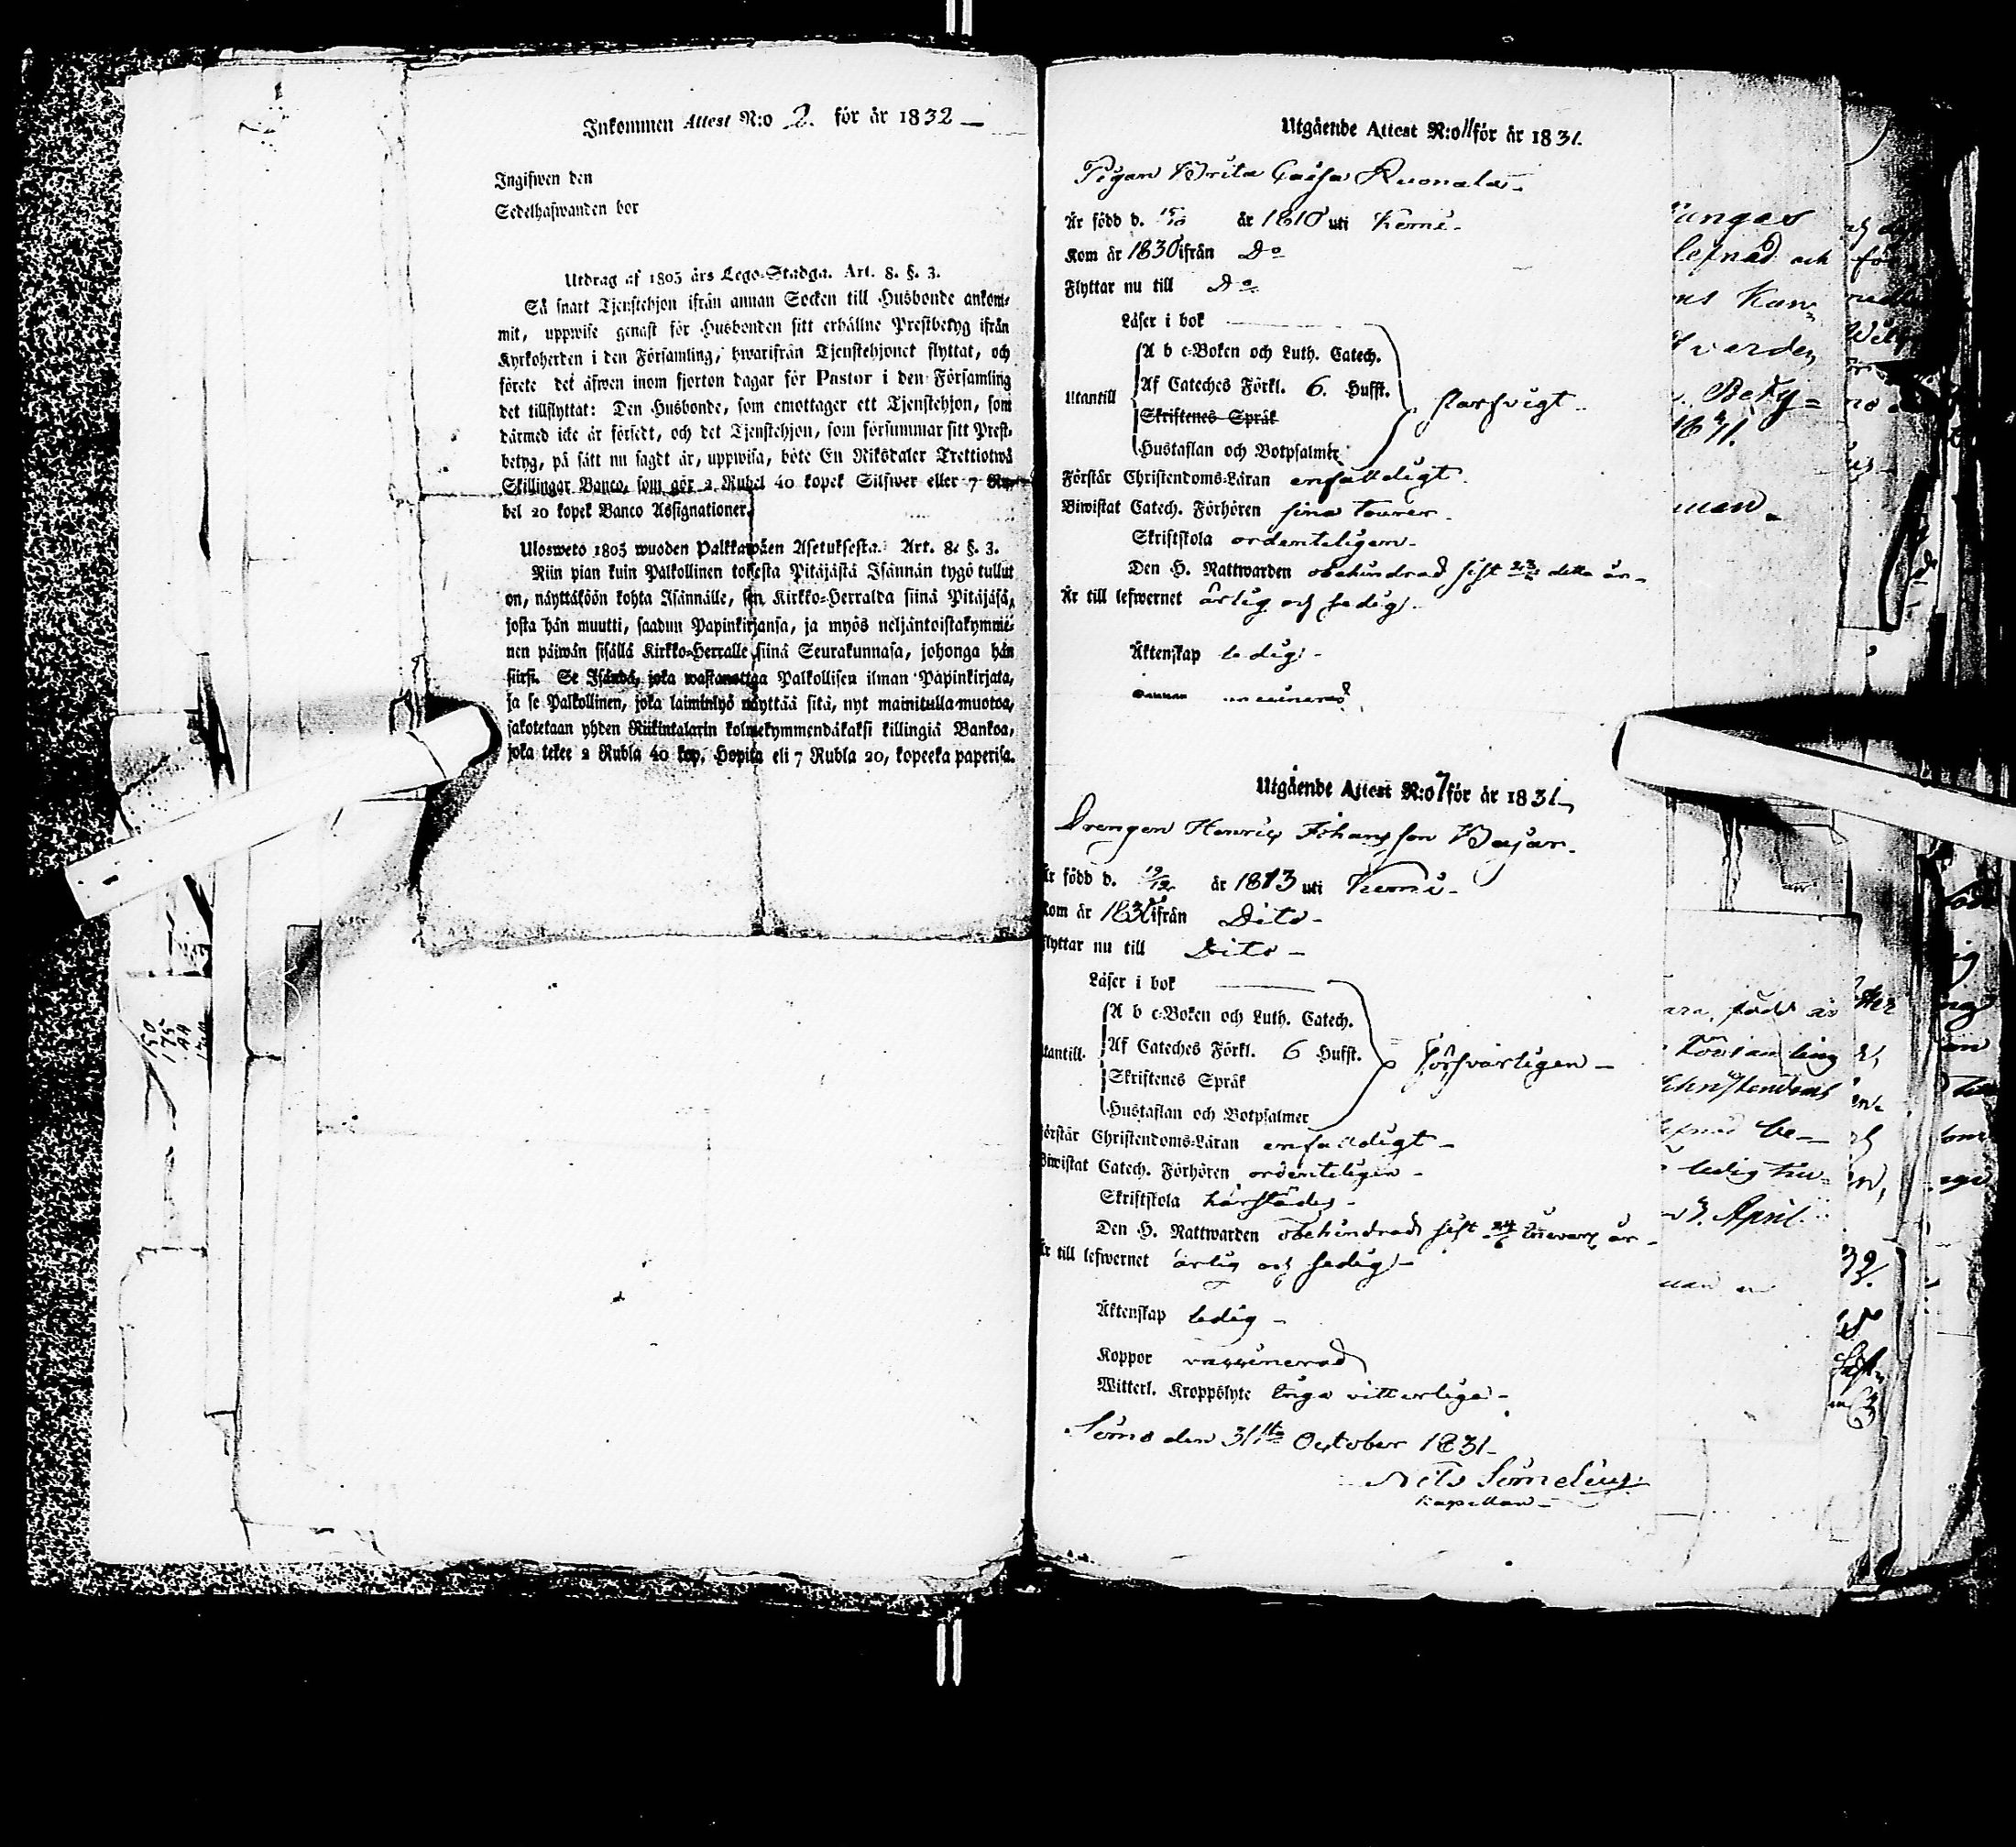 Inkommen Attest N:o 2. för år 1832 —
Ingifwen den
Sedelhafwanden bor
Utdrag af 1805 års Lego-Stadga. Art. 8. §. 3.
Så snart Tjenstehjon ifrån annan Socken till Husbonde ankom-
mit, uppwise genast för Husbonden sitt erhållne Prestbetyg ifrån
Kyrkoherden i den Församling, hwarifrån Tjenstehjonet flyttat, och
förete det äfwen inom fjorton dagar för Pastor i den Församling
det tillflyttat: Den Husbonde, som emottager ett Tjenstehjon, som
därmed icke är försedt, och det Tjenstehjon, som försummar sitt Prest-
betyg, på sätt nu sagdt är, uppwisa, böte En Riksdaler Trettiotwå
Skillingar Banco, som gör 2 Rubel 40 kopek Silfwer eller 7 Ru-
bel 20 kopek Banco Assignationer.
Ulosweto 1805 wuoden Palkkawäen Asetuksesta. Art. 8. §. 3.
Niin pian kuin Palkollinen toisesta Pitäjästä Isännän tygö tullut
on, näyttäköön kohta Isännälle, sen Kirkko-Herralda siinä Pitäjäsä,
josta hän muutti, saadun Papinkirjansa, ja myös neljäntoistakymme-
nen päiwän sisällä Kirkko-Herralle siinä Seurakunnasa, johonga hän
siirsi. Se Isändä, joka wastanottga Palkollisen ilman Papinkirjata,
ja se Palkollinen, joka laiminlyö näyttää sitä, nyt mainitulla muotoa,
sakotetaan yhden Riikintalarin kolmekymmendäkaksi killingiä Bankoa,
joka tekee 2 Rubla 40 kop. Hopiasa eli 7 Rubla 20, kopeeka paperisa.
Utgående Attest N:o 11 för år 1831.
Pigan Brita Caisa Ruonala.
Är född d. 15/10 år 1810 uti Kemi.
Kom år 1830 ifrån Do
Flyttar nu till Do
Läser i bok
A b c-Boken och Luth. Catech.
Utantill Af Cateches Förkl. 6. Hufst.
Skriftenes Språk
Hustaflan och Botpsalmer
Förstår Christendoms-Läran enfalldigt.
Biwistat Catech. Förhören sina tourer.
Skriftskola ordenteligen.
Den H. Nattwarden obehindrad sist detta år.
Är till lefwernet ärlig och sedig.
Äktenskap ledig.
Utgående Attest N:o 7 för år 1831.
Drengen Henric Johansson Bajar.
Är född d. 19/12 år 1813 uti Kemi.
Kom år 1830 ifrån Dito
Flyttar nu till Dito
Läser i bok
A b c-Boken och Luth. Catech.
Utantill. Af Cateches Förkl. 6 Hufst. försvarligen
Skriftenes Språk
Hustaflan och Botpsalmer
Förstår Christendoms-Läran enfalldigt
Biwistat Catech. Förhören ordenteligen
Skriftskola härstädes
Den H. Nattwarden obehindrad sist 24/6 år
Är till lefwernet ärlig och sedig
Äktenskap ledig
Koppor vaccinerad
Witterl. Kroppslyte inga vitterliga
Simo den 31ste October 1831.
Nils Simelius
Kapellan